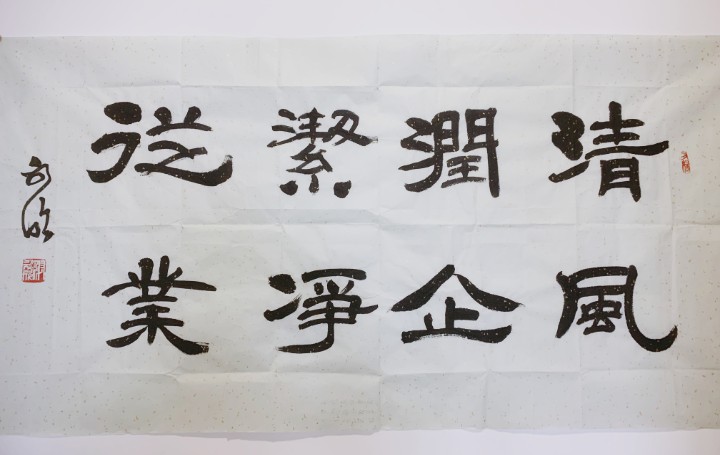 清風
潤企
潔淨
從業